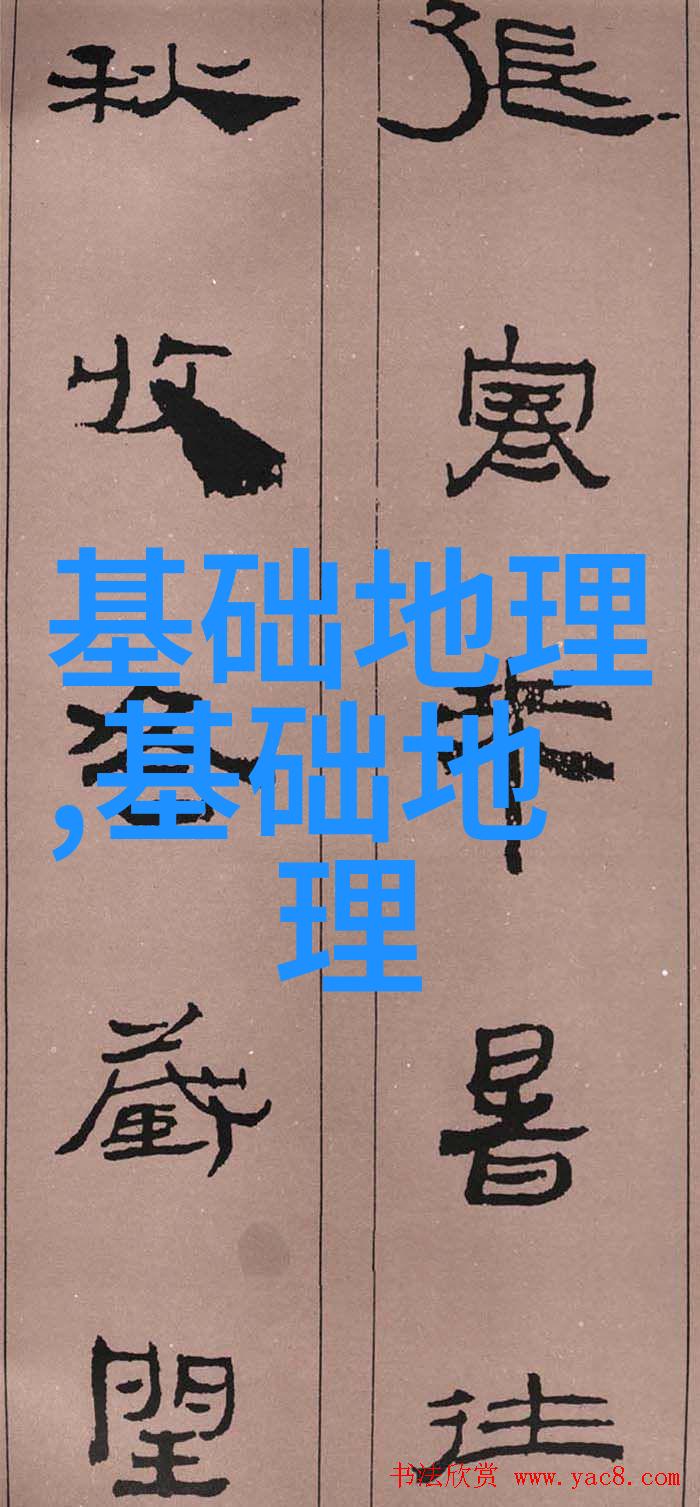 張寒来暑往
秋收冬藏閏
基础地理
,基础地
理
书法欣赏 www.yac8.com